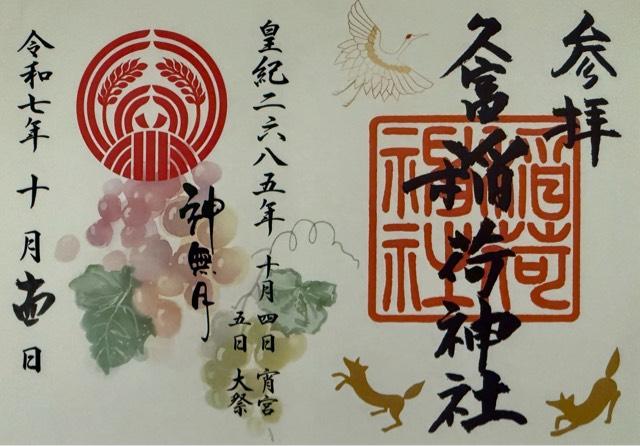 参拝
久富稲荷神社
稲荷
神社
皇紀二六八五年 十月四日 宵宮
五日 大祭
神無月
令和七年 十月 日